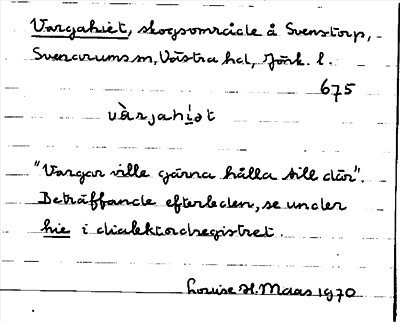 Vargahiet, skogsområde å Svenstorp,
Svenarums sn, Västra hd, Jönk. l.
675
vàrjahı̀ət
"Vargar ville gärna hålla till där".
Beträffande efterleden, se under
hie i dialektordregistret.
Louise H. Maas 1970